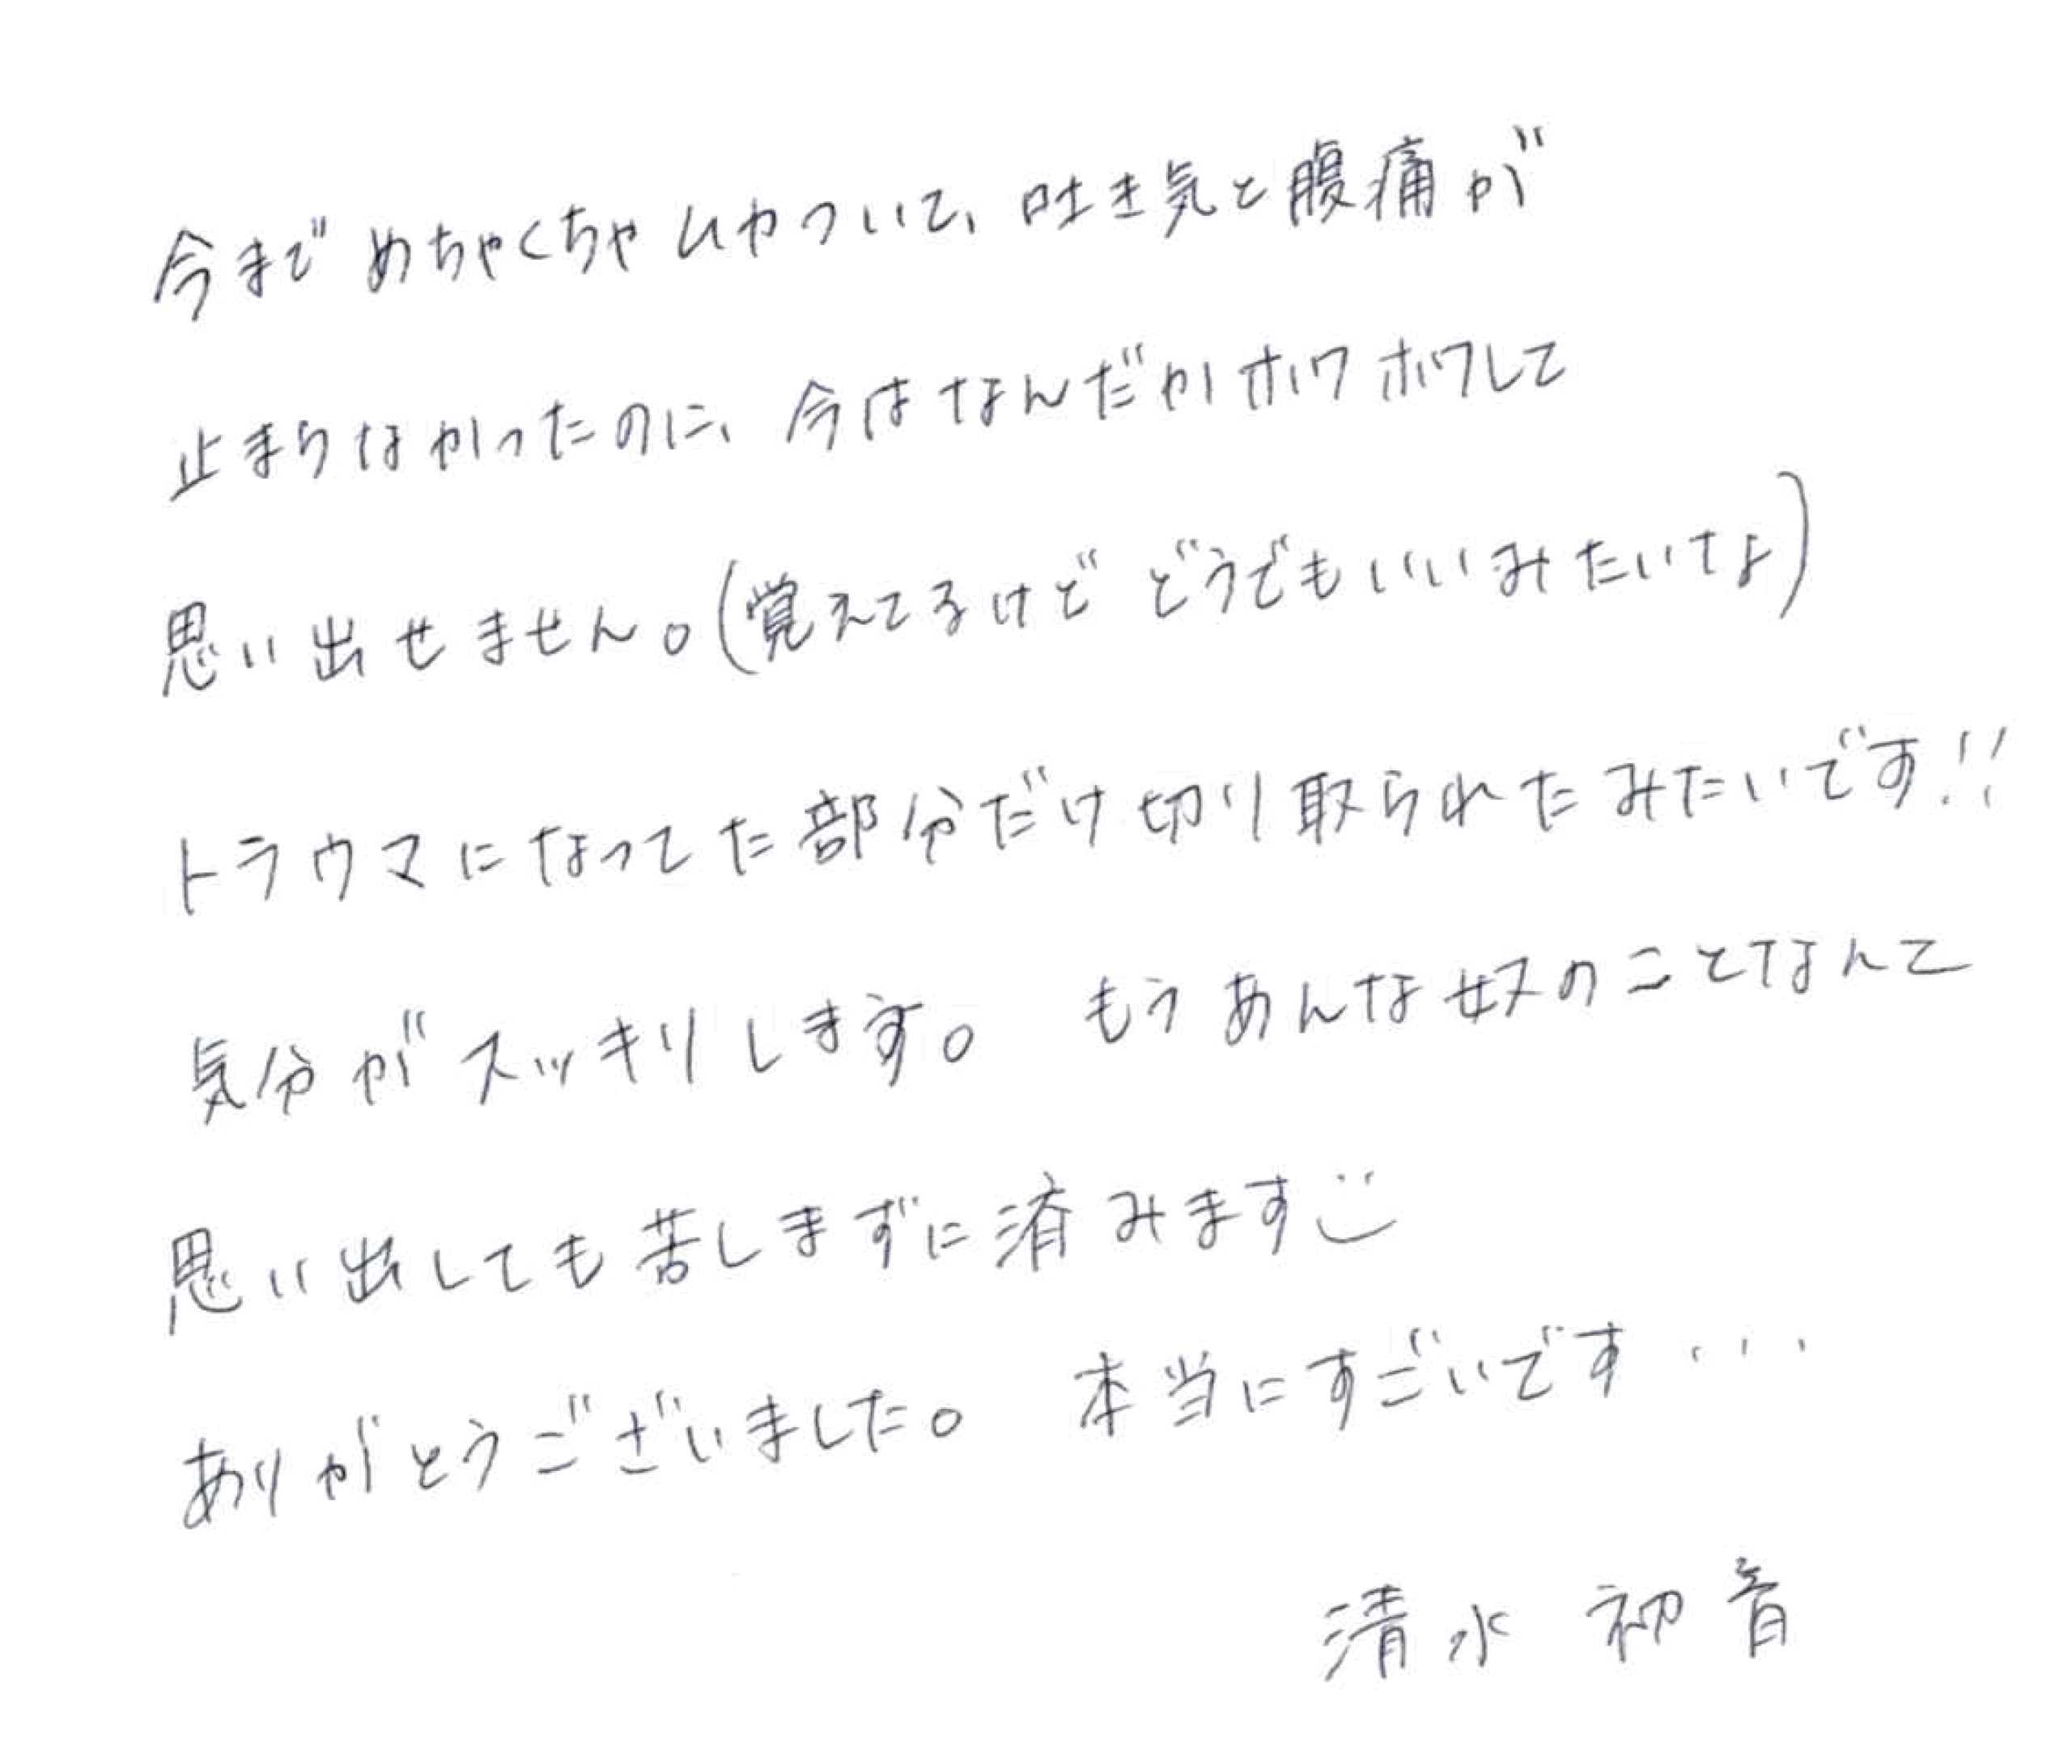 今までめちゃくちゃムカついて、吐き気と腹痛が
止まらなかったのに、今はなんだかホワホワして
思い出せません。(覚えてるけどどうでもいいみたいな)
トラウマになってた部分だけ切り取られたみたいです!!
気分がスッキリします。もうあんな奴のことなんて
思い出しても苦しまずに済みます
ありがとうございました。本当にすごいです・・・
清水 初音